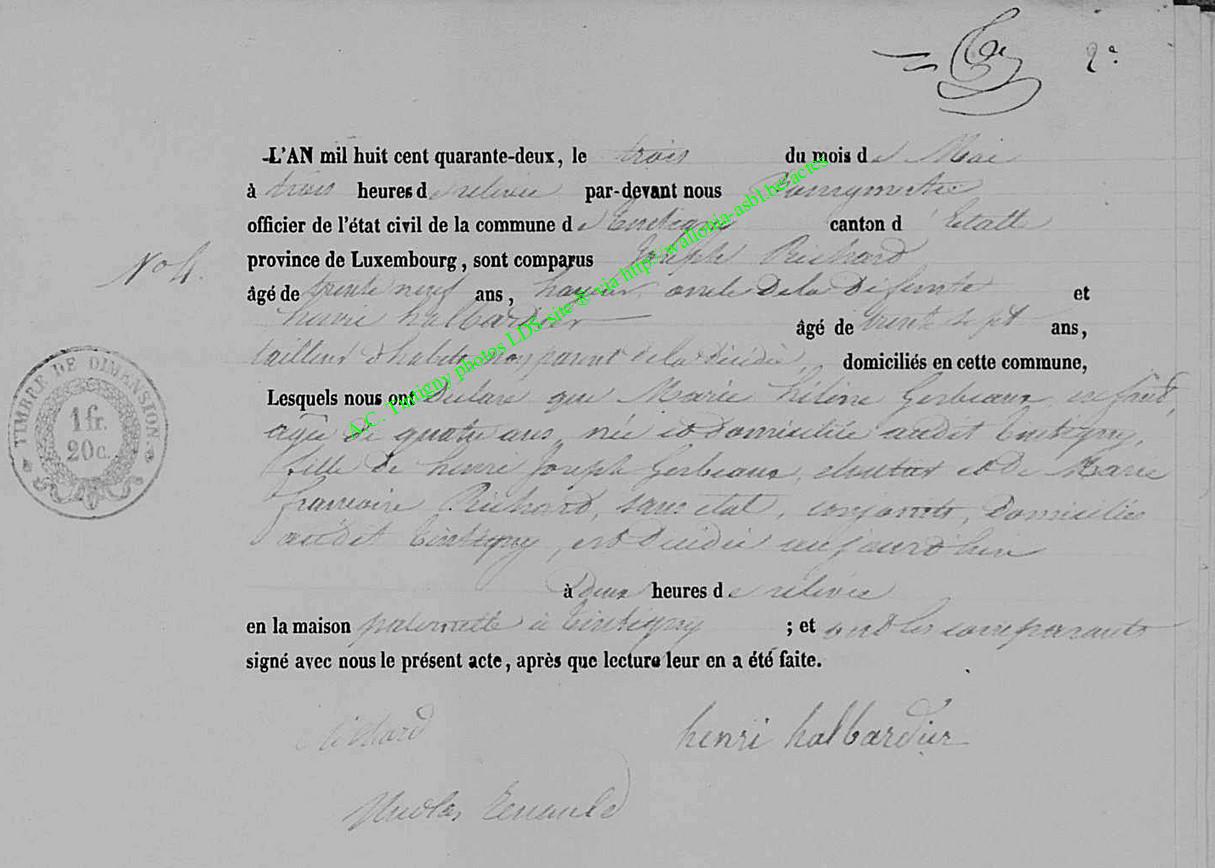 2e
L'AN mil huit cent quarante-deux, le trois du mois de Mai
à trois heures de relevée par-devant nous Bourgmestre
officier de l'état civil de la commune de Tintigny canton d'Etalle
province de Luxembourg, sont comparus Joseph Richard
No 4.
âgé de trente neuf ans, oncle de la défunte et
henri halbardier âgé de trente sept ans,
tailleur d'habits, non parent de la décédée, domiciliés en cette commune,
Lesquels nous ont Déclaré que Marie hélène Gerbeaux, enfant,
agée de quatre ans, née et domiciliée audit Tintigny,
fille de henri Joseph Gerbeaux, et de Marie
françoise Richard, sans état, conjoints, domiciliés
audit Tintigny, est décédée aujourd'hui
à deux heures de relevée
en la maison paternelle à Tintigny ; et ont les comparants
signé avec nous le présent acte, après que lecture leur en a été faite.
TIMBRE DE DIMENSION
1 fr.
20 c.
Richard
henri halbardier
Nicolas
A.C. Tintigny photos LDS-site @ via http://wallonia-asbl.be/actes